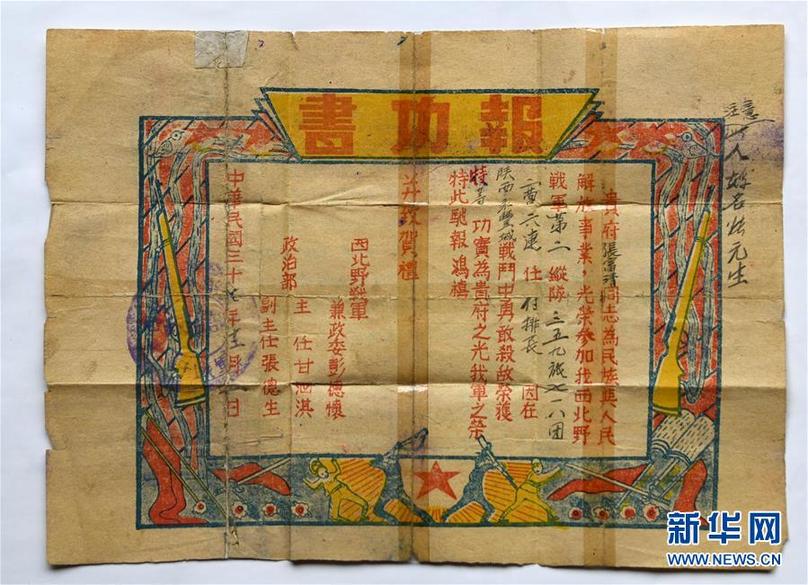 報功書
注意
貴府張富清同志為民族與人民
解放事業，光榮參加我西北野
戰軍第二縱隊三五九旅七一八团
二营六連任付排長因在
陕西永豐城戰鬥中勇敢殺敌荣獲
特等功實為貴府之光我軍之榮
特此馳報鴻禧
并致賀禮
西北野戰軍
兼政委彭德懷
政治部
主任甘泗淇
副主任張德生
中華民國三十七年
月
日
新华网
WWW.NEWS.CN